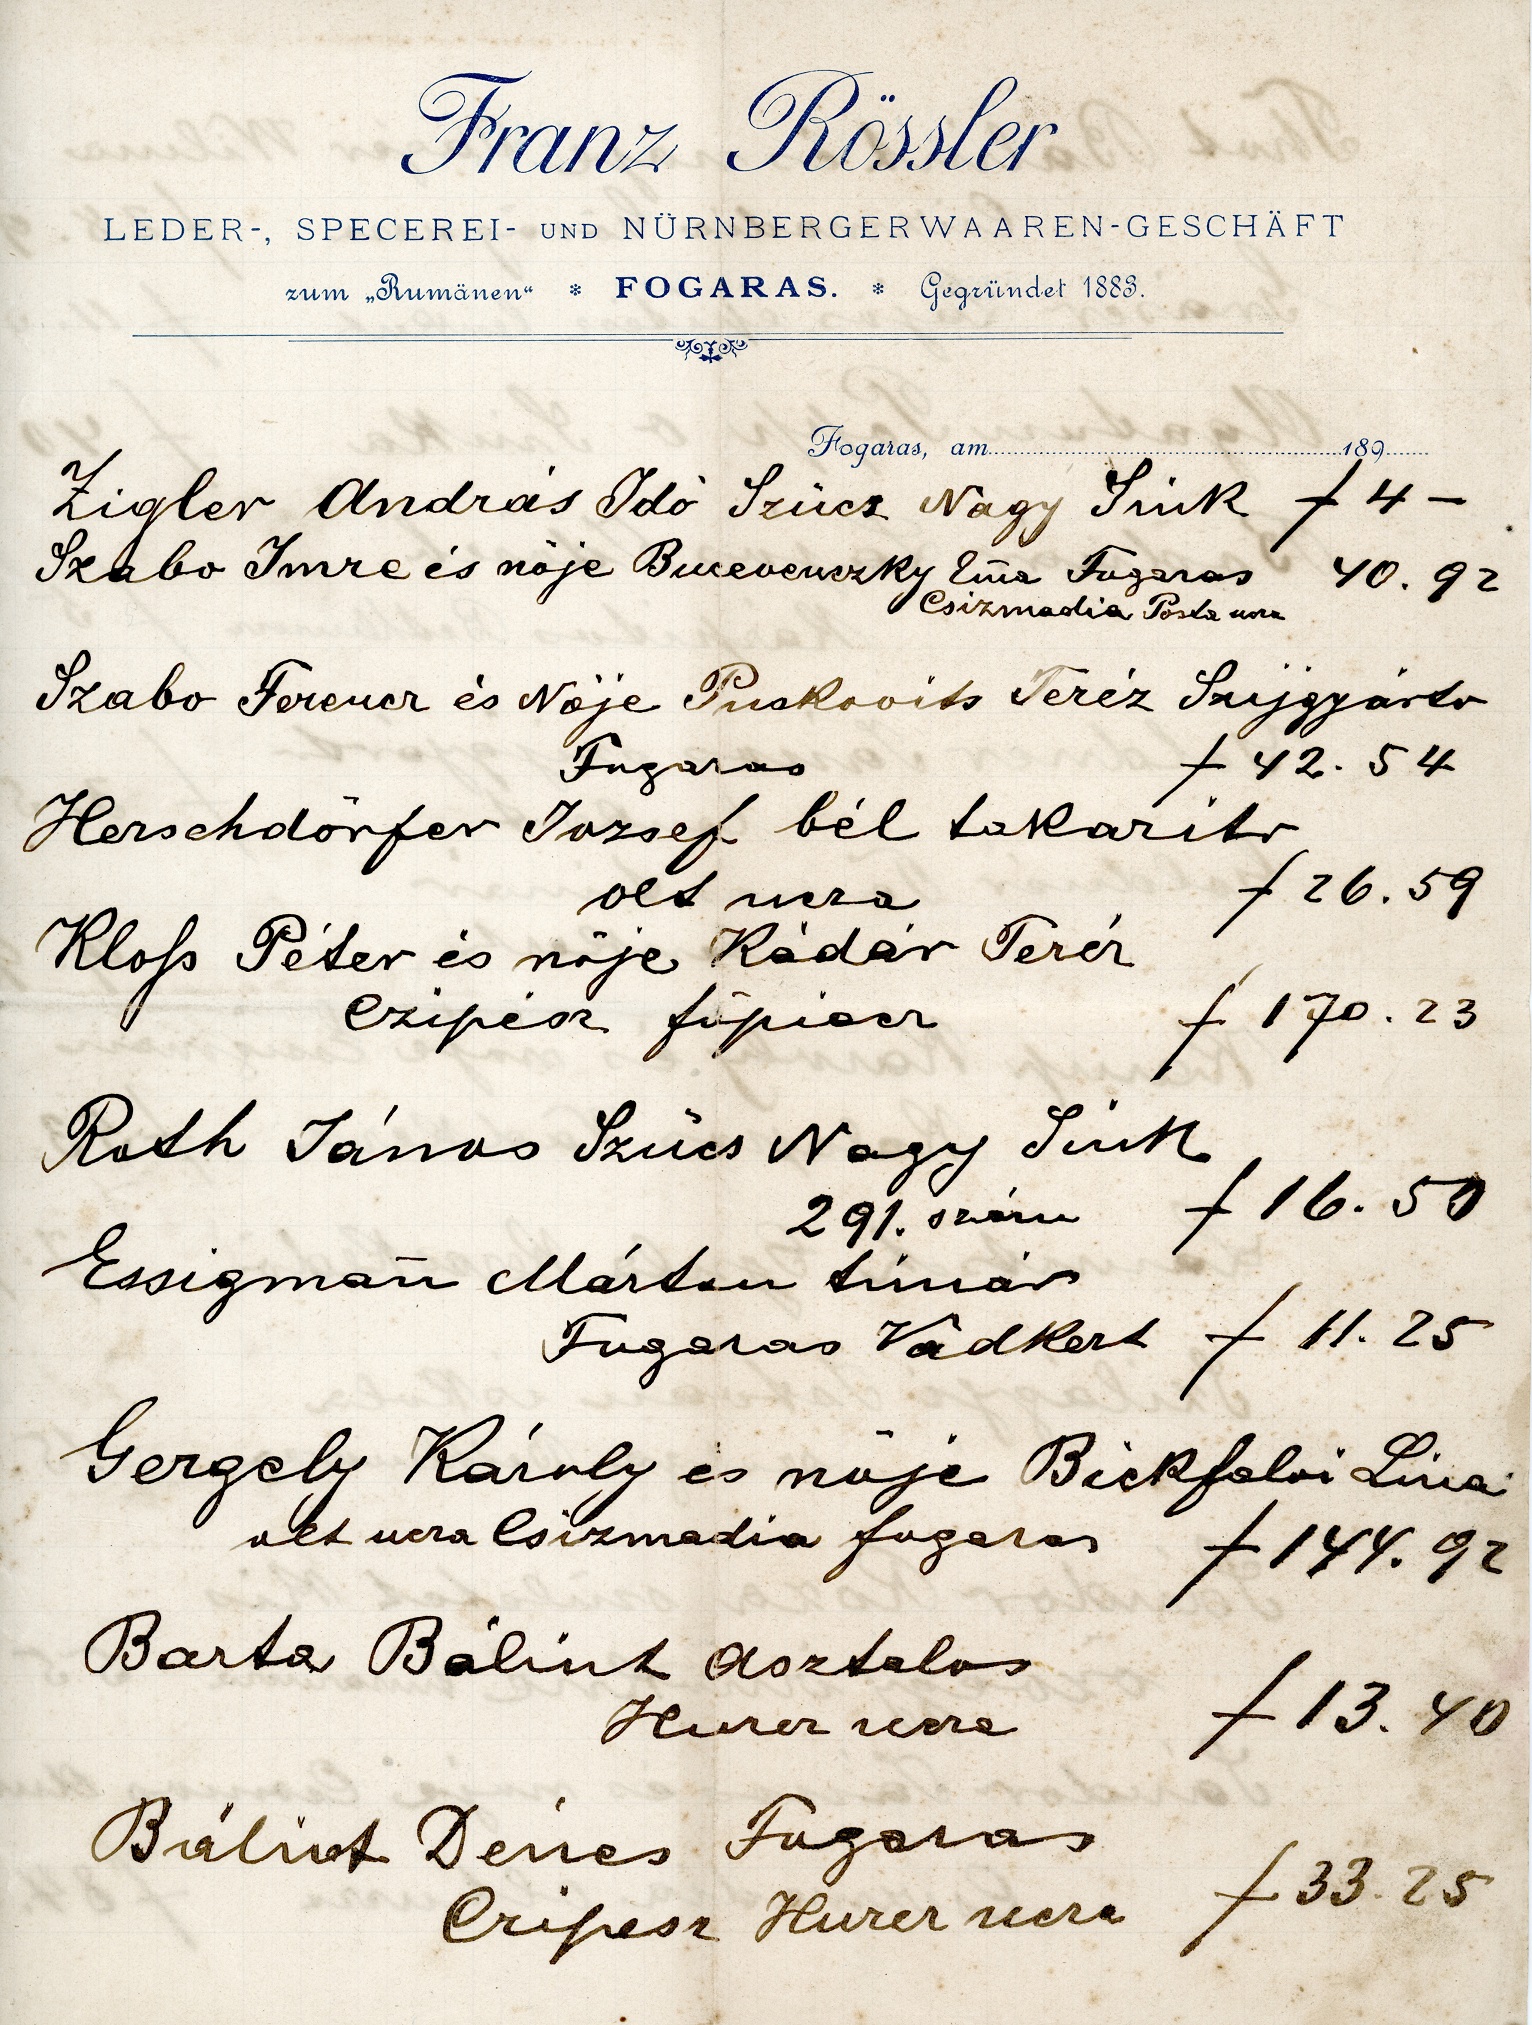 Franz Rössler
LEDER-, SPECEREI- UND NÜRNBERGERWAAREN-GESCHÄFT
zum „Rumänen“ * FOGARAS. * Gegründet 1883.
Fogaras, am 189
Zigler András Idő Szücz Nagy Sink f 4 –
Szabo Imre és nöje Em̄a Fogaras 40.92
Csizmadia Posta ucza
Szabo Ferencz és Nöje Puskovits Teréz Szijgyárto
Fogaras f 42.54
Herschdörfer Jozsef bél takarito
olt ucza f 26.59
Kloss Péter és nöje Kádár Teréz
Czipész föpiacz f 170.23
Roth János Szücs Nagy Sink
291. szám f 16.50
Essigman̄ Márton timár
Fogaras Vádkert f 11.25
Gergely Károly és nöje Bickfalvi Lina
olt ucza Csizmadia fogaras f 144.92
Barta Bálint asztalos
Hurez ucza f 13.40
Bálint Dénes Fogaras
Czipesz Hurez ucza f 33.25